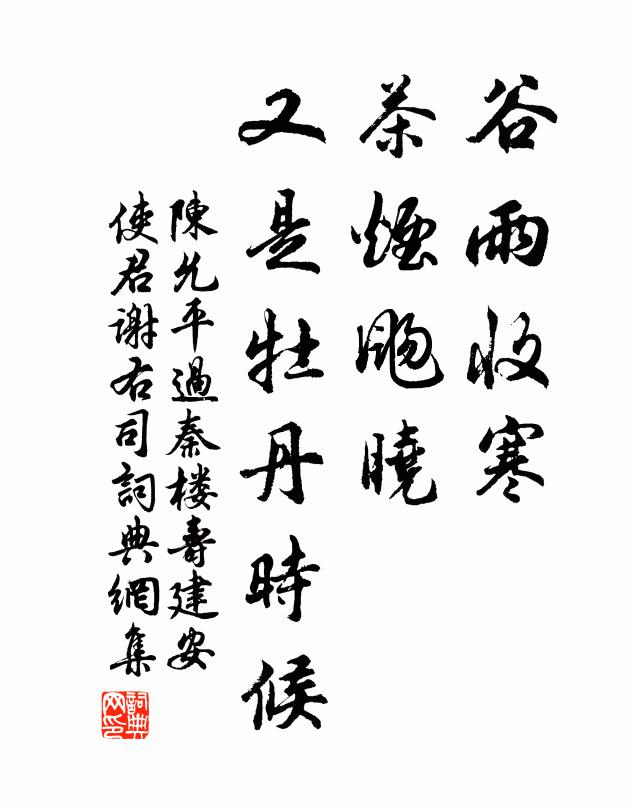 谷雨收寒
茶煙颺曉
又是牡丹時候
陳允平過秦樓壽建安
使君謝右司詞典網集
詞典網印